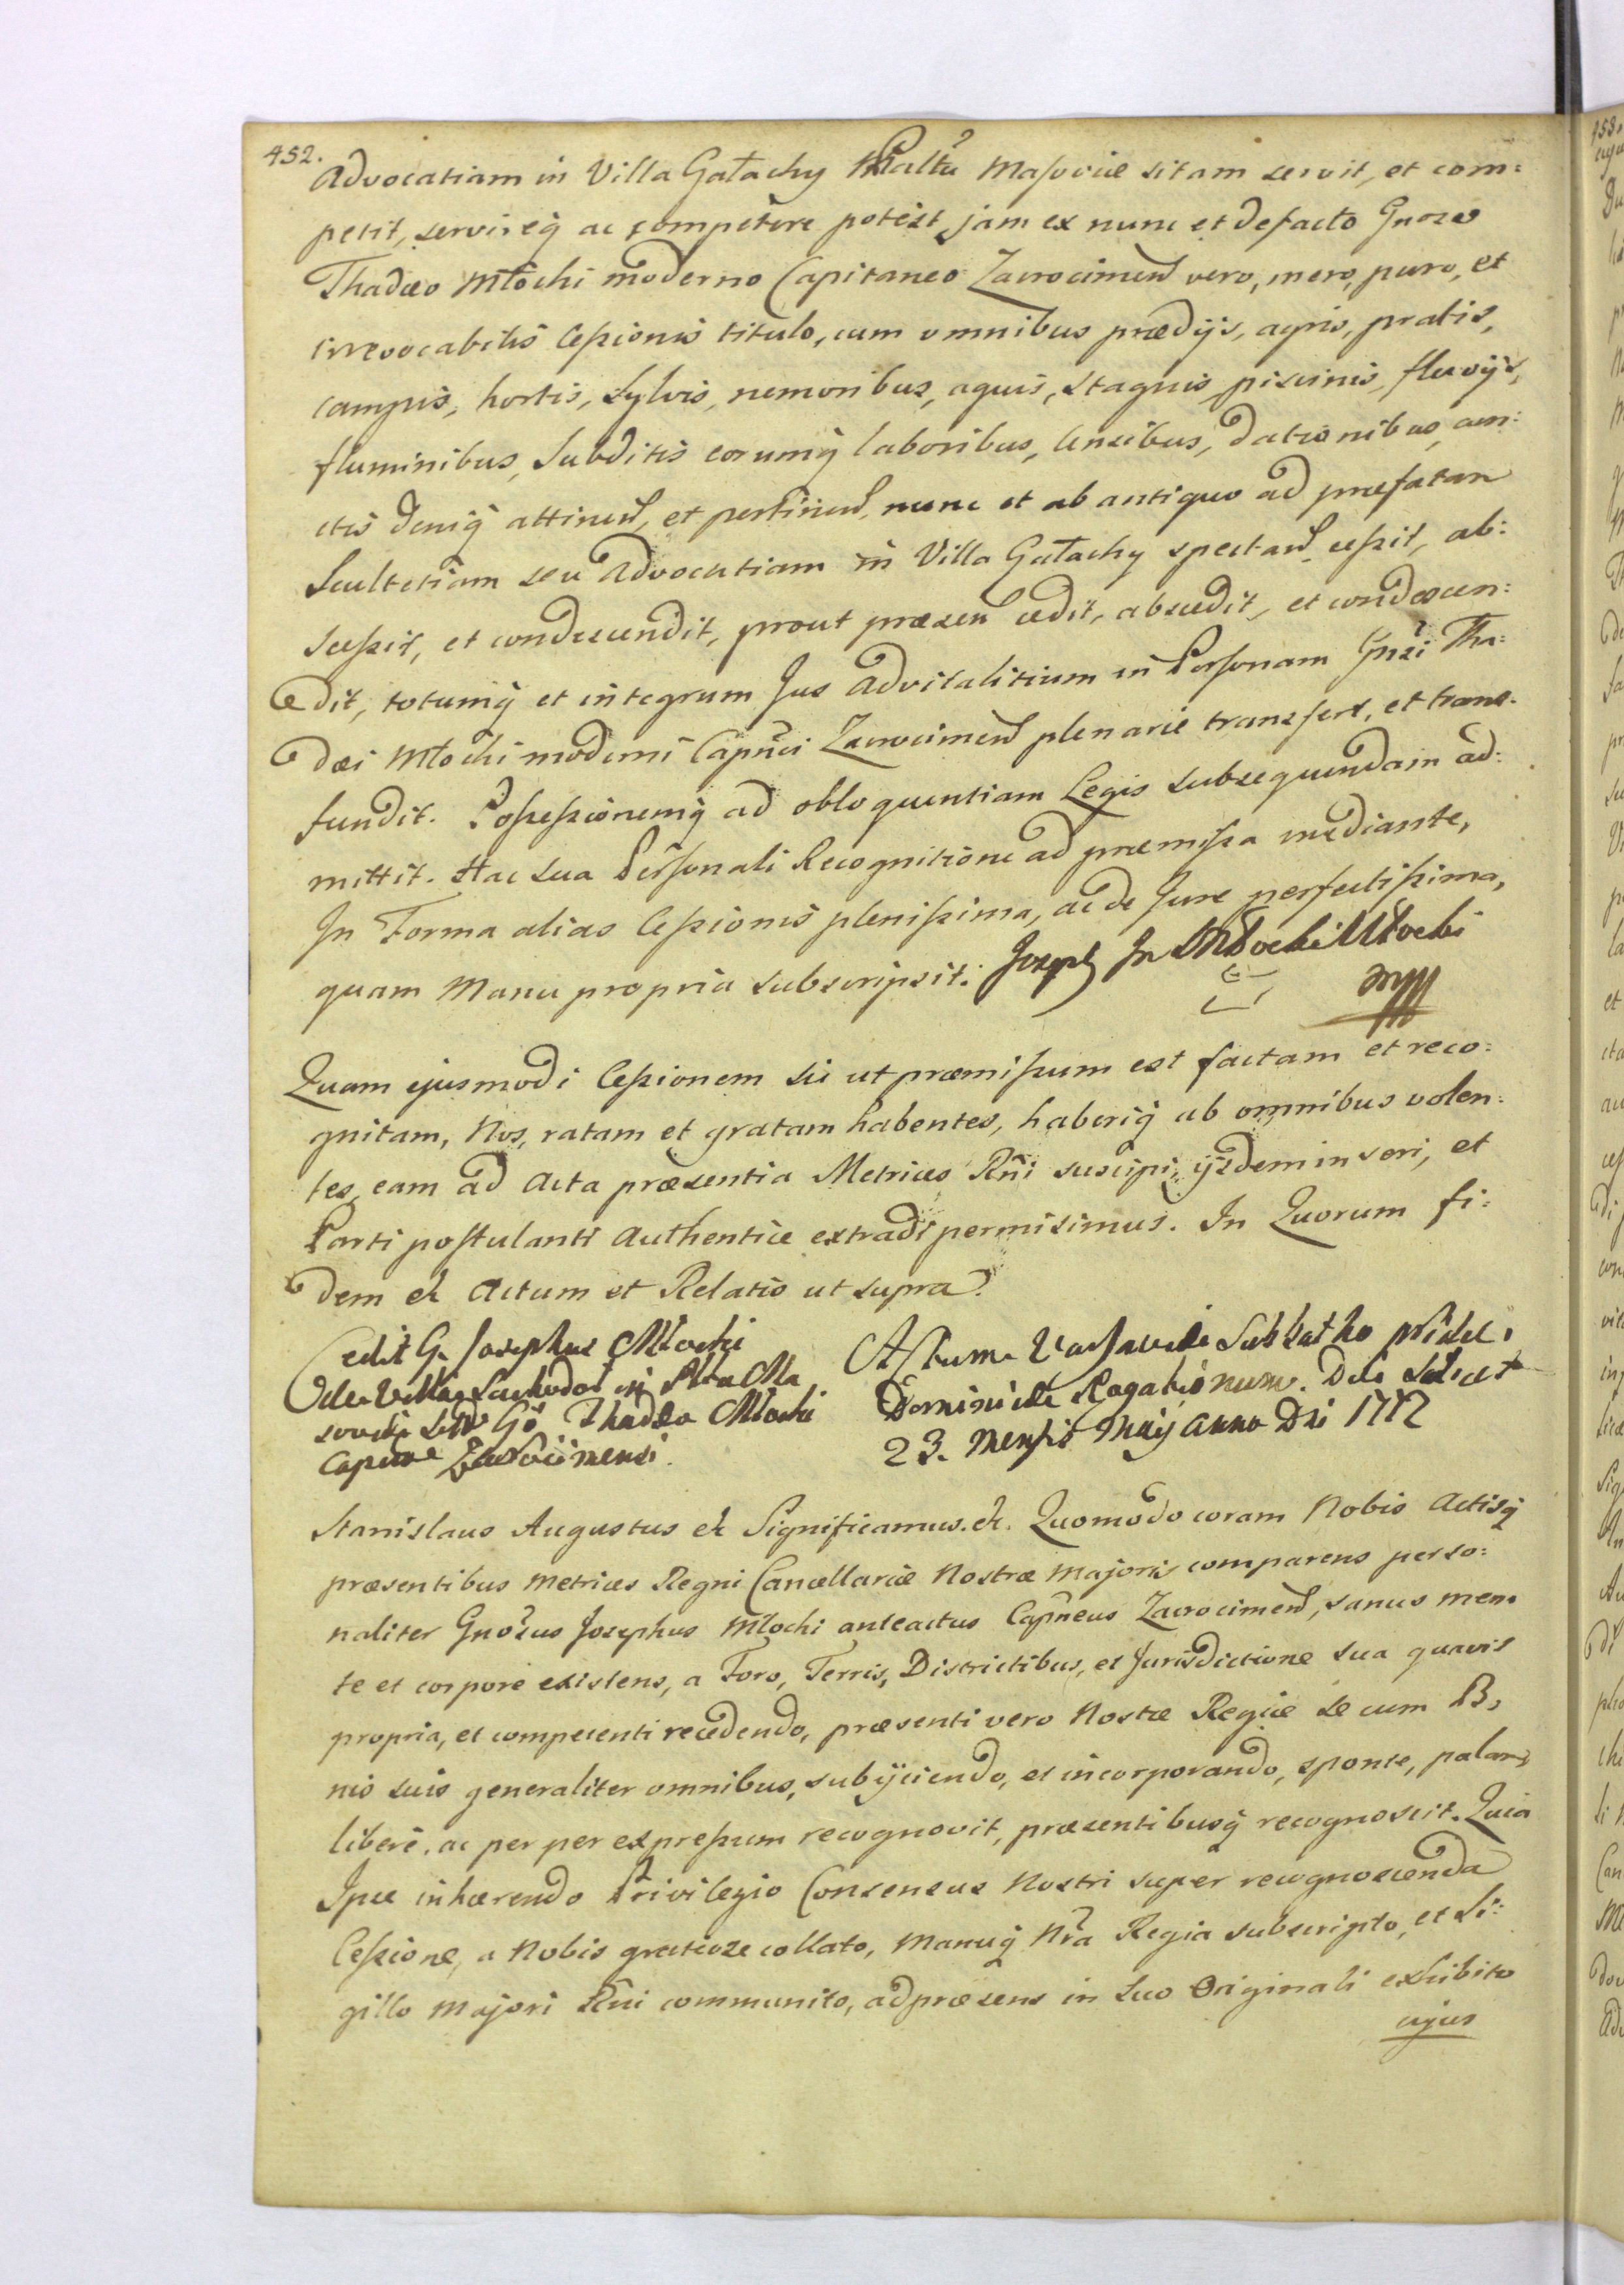 452.
Advocatiam in Villa Gałachy Paltũ Masoviæ sitam servit, et com:
petit, servireq̃ ac competere potest, jam ex nunc et defacto Gnoso
Thadæo Młocki moderno Capitaneo Zacrocimen̄ vero, mero, puro, et
irrevocabilis Cessionis titulo, cum omnibus prædijs, agris, pratis,
campis, hortis, Sylvis, nemoribus, aquis, stagnis, piscinis, fluvijs,
fluminibus, Subditis eorumq̃ laboribus, Censibus, dationibus, cun:
ctis deniq̃ attinen̄, et pertinen̄, nunc et ab antiquo ad præfatam
Scultetiam seu Advocatiam in Villa Gałachy spectan̄, cessit, ab:
scessit, et condescendit, prout præsen̄ cedit, abscedit, et condescen:
dit, totumq̃ et integrum Jus Advitalitium in Personam Gnsi Tha:
dæi Młocki moderni Capnei Zacrocimen̄ plenarie transfert, et trans:
fundit. Possessionemq̃ ad obloquentiam Legis subsequendam ad:
mittit. Hac sua Personali Recognitione ad præmissa mediante,
In Forma alias Cessionis plenissima, ac de Jure perfectissima,
quam Manu propria subscripsit. Joseph Młocki
mpp
Quam ejusmodi Cessionem sic ut præmissum est factam et reco:
gnitam, Nos, ratam et gratam habentes, haberiq̃ ab omnibus volen:
tes, eam ad Acta præsentia Metrices Rñi suscipi, ijsdem inseri, et
Parti postulanti Authentice extradi permisimus. In Quorum fi:
dem et Actum et Relatio ut supra.
Cedit G. Josephus Młocki
Thadæo Młocki
Capneo Zacrocimensi.
Actum Varsaviæ Sabbatho pridie
Dominicæ Rogationum. Die scilicet
23. Mensis Maij Anno Dni 1772
Stanislaus Augustus et Significamus. et. Quomodo coram Nobis Actisq̃
præsentibus Metrices Regni Cancellariæ Nostræ Majoris comparens perso:
naliter Gnosus Josephus Młocki anteactus Capneus Zacrocimen̄, sanus men:
te et corpore existens, a Foro, Terris, Districtibus, et Jurisdictione sua quavis
propria, et competenti recedendo, præsenti vero Nostræ Regiæ se cum B,
nis suis generaliter omnibus, subijciendo, et incorporando, sponte, palam,
libere, ac per per expressum recognovit, præsentibusq̃ recognoscit. Quia
Ipse inhærendo Privilegio Consensus Nostri super recognoscenda
Cessione, a Nobis gratiose collato, Manuq̃ Nra Regia subscripto, et Si:
gillo Majori Rñi communito, adpræsens in suo Originali exhibito
cujus